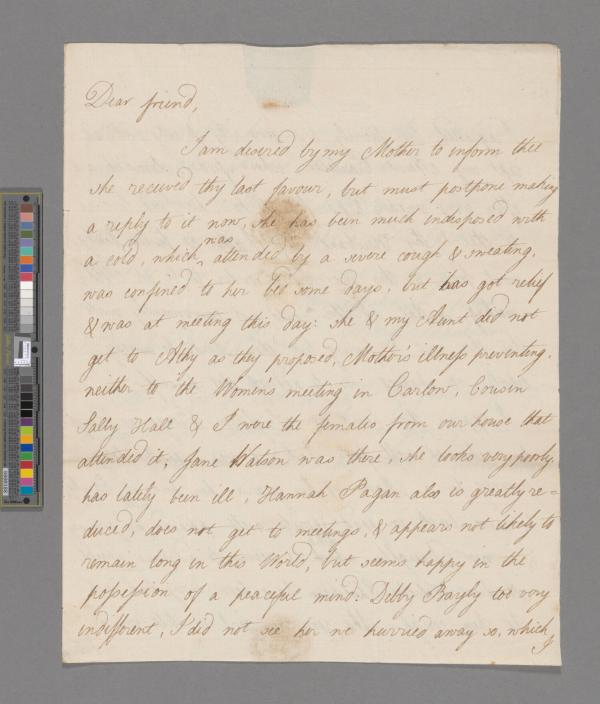 Dear friend,
I am desired by my Mother to inform thee
she received thy last favour, but must postpone making
a reply to it now, she has been much indisposed with
a cold, which was attended by a severe cough & sweating,
was confined to her bed some days, but has got relief
& was at meeting this day: she & my Aunt did not
get to Athy as they proposed, Mother's illness preventing.
neither to the Women's meeting in Carlow, Cousin
Sally Hall & I were the females from our house that
attended it, Jane Watson was there, she looks very poorly,
has lately been ill, Hannah Pagan also is greatly re=
duced, does not get to meetings, & appears not likely to
remain long in this World, but seems happy in the
possession of a peaceful mind: Debby Bayly too very
indifferent, I did not see her we hurried away so, which
I